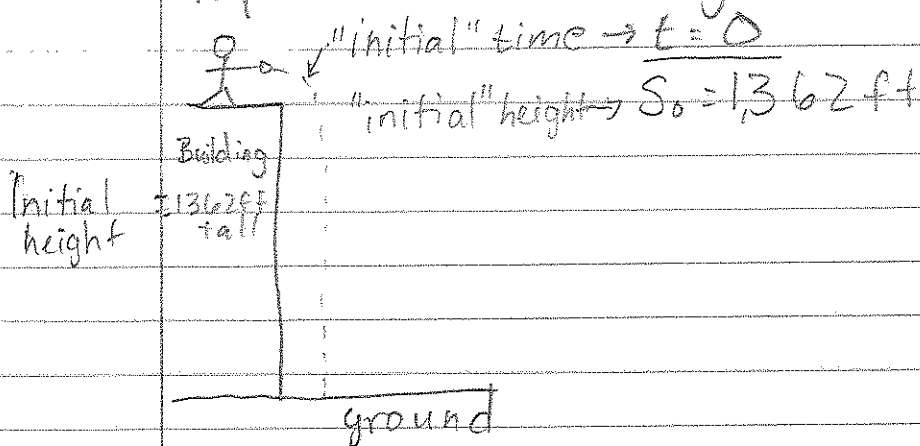 "initial" time → t = 0
"initial" height → S₀ = 1,362 ft
Building
= 1362 ft
tall
Initial
height
ground